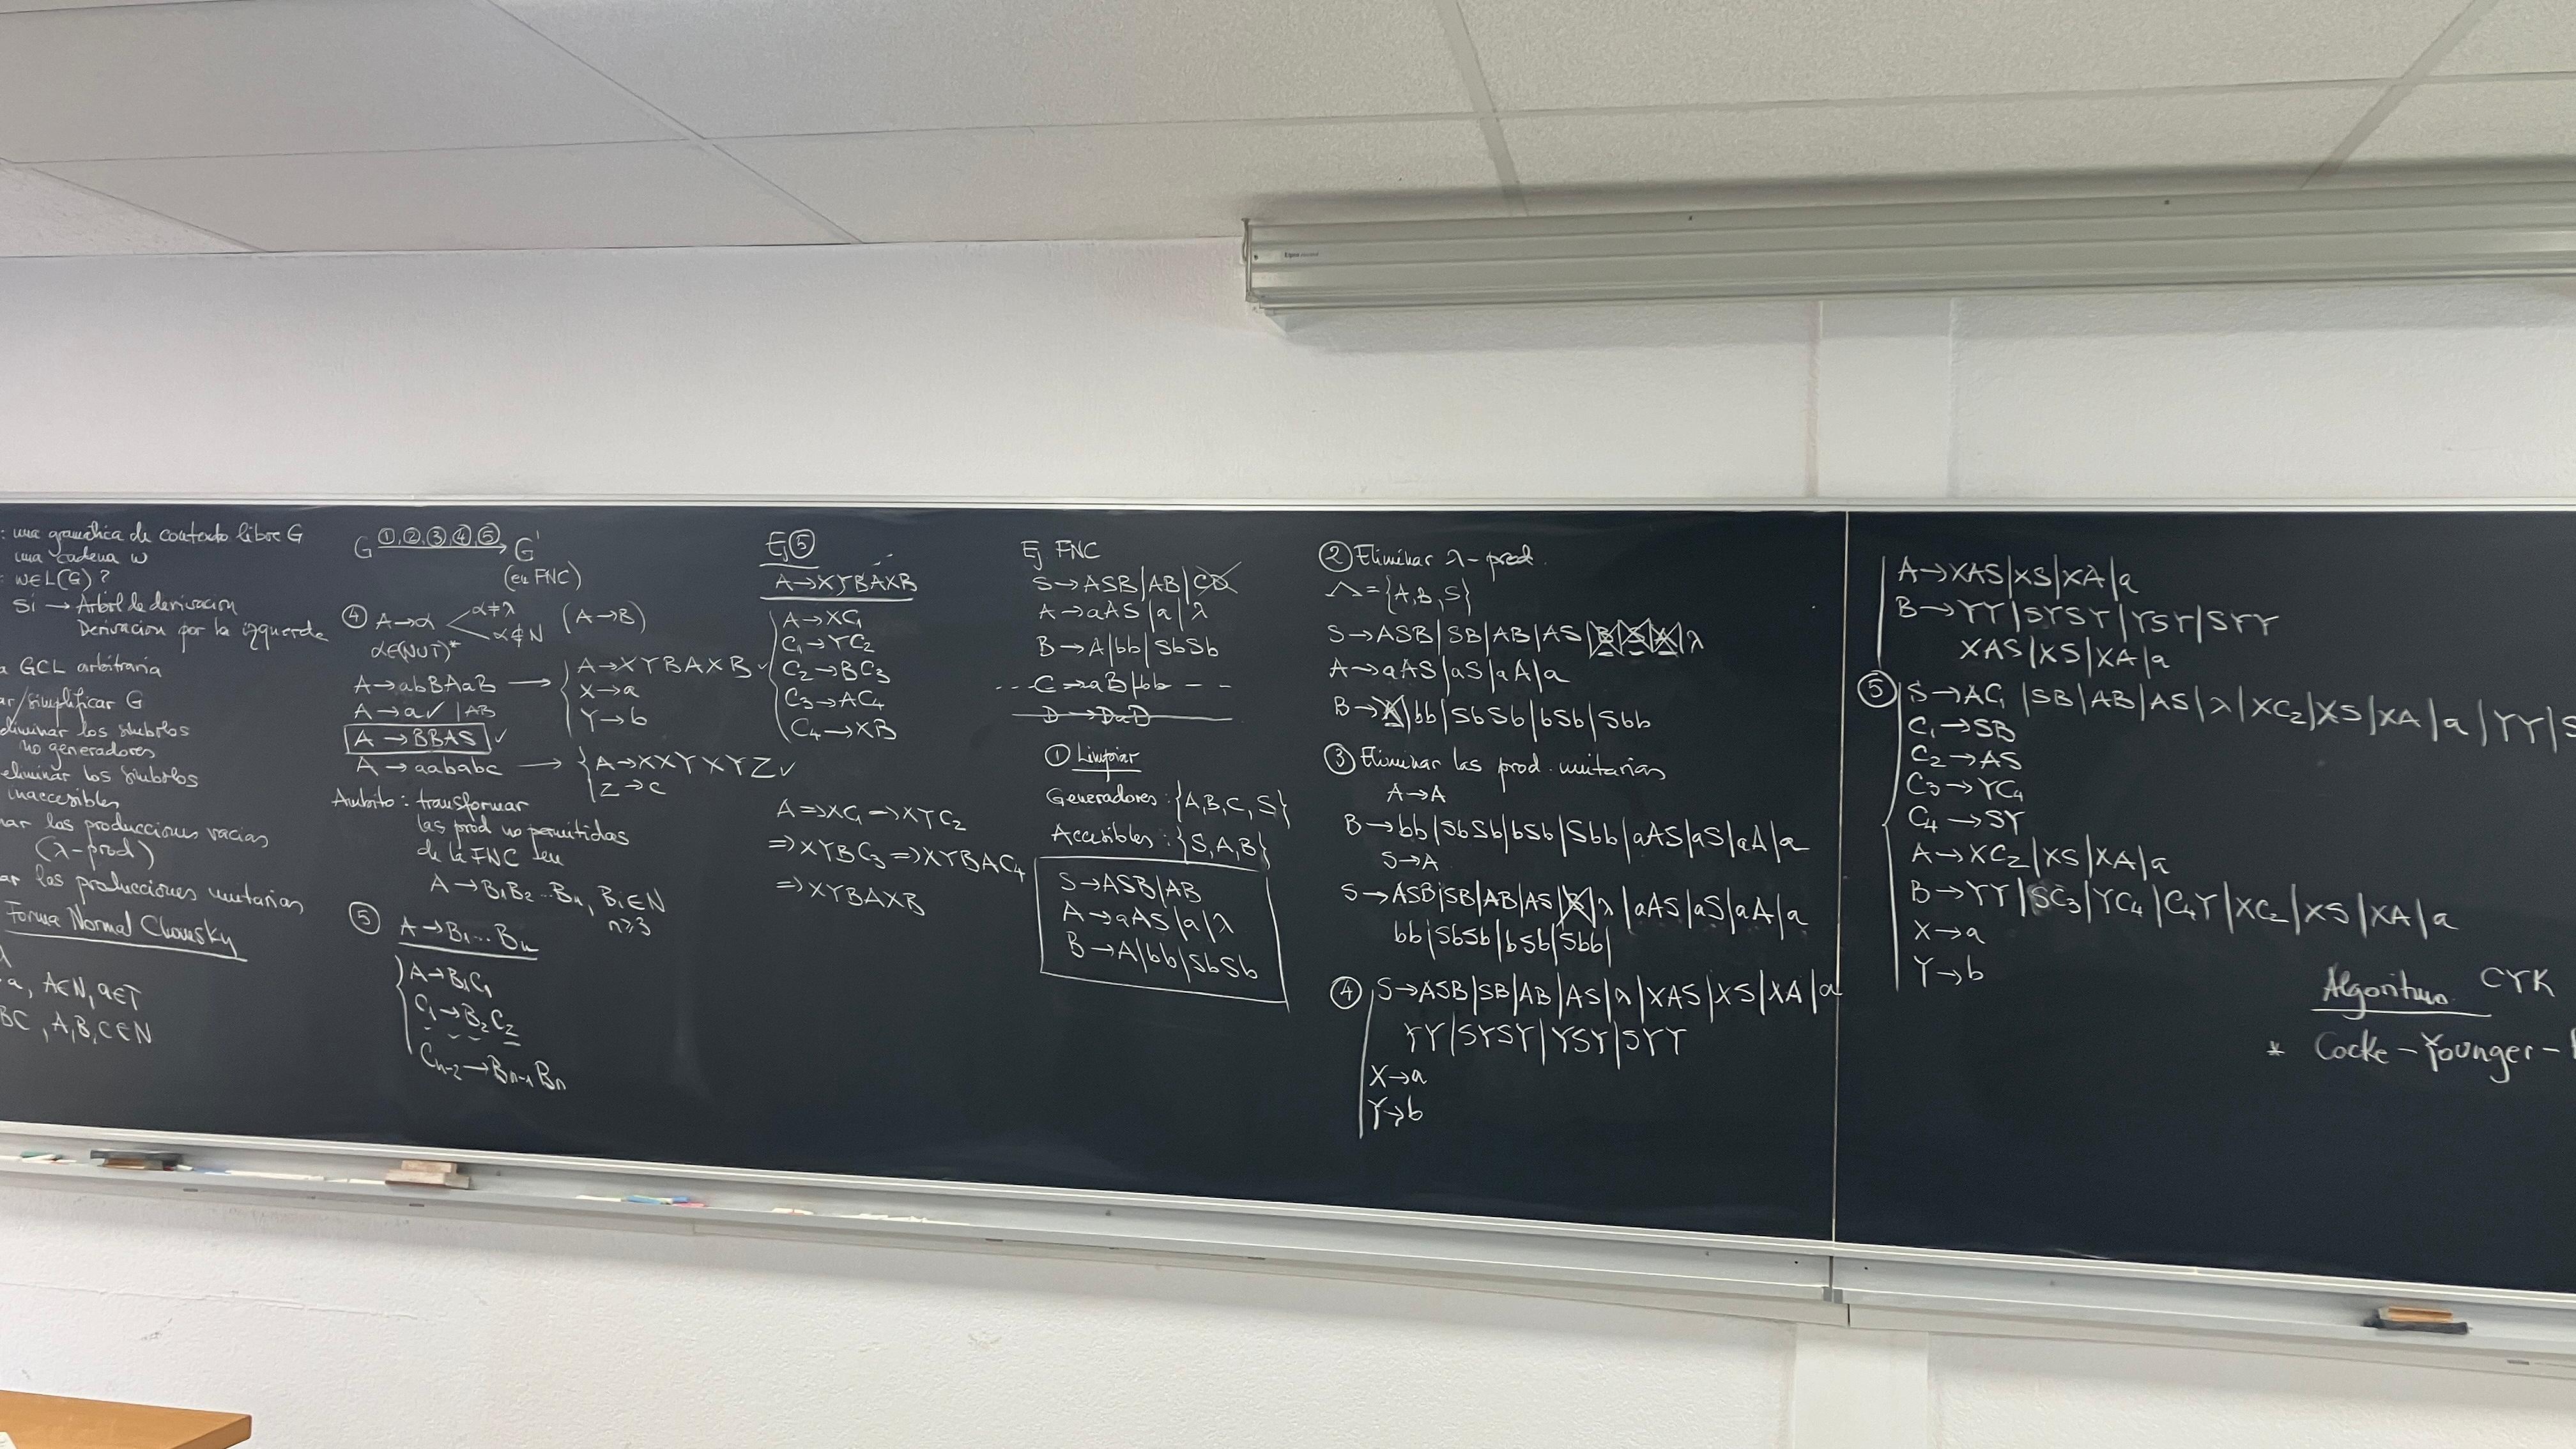 : una gramática de contexto libre G
una cadena w
: w∈L(G)?
Sí → Árbol de derivación
Derivación por la izquierda
a GCL arbitraria
ar/simplificar G
eliminar los símbolos
no generadores
eliminar los símbolos
inaccesibles
nar las producciones vacías
(λ-prod)
ar las producciones unitarias
Forma Normal Chomsky
λ
a, A∈N, a∈T
BC, A,B,C∈N
G ①,②,③,④,⑤ → G'
(en FNC)
④ A→α α≠λ α∉N (A→B)
α∈(N∪T)*
A→abBAaB → A→XYBAXB ✓
X→a
Y→b
A→a✓ |AB
A→BBAS ✓
A→aababc → A→XXYXYZ ✓
Z→c
Ámbito: transformar
las prod no permitidas
de la FNC en
A→B1B2...Bn, Bi∈N
n≥3
⑤ A→B1...Bn
A→B1C1
C1→B2C2
Cn-2→Bn-1Bn
Ej ⑤
A→XYBAXB
A→XC1
C1→YC2
C2→BC3
C3→AC4
C4→XB
A⇒XC1⇒XYC2
⇒XYBC3⇒XYBAC4
⇒XYBAXB
Ej FNC
S→ASB|AB|CD
A→aAS|a|λ
B→A|bb|SbSb
C→aB|bb
D→DaD
① Limpiar
Generadores: {A,B,C,S}
Accesibles: {S,A,B}
S→ASB|AB
A→aAS|a|λ
B→A|bb|SbSb
② Eliminar λ-prod.
Λ={A,B,S}
S→ASB|SB|AB|AS|B|S|A|λ
A→aAS|aS|aA|a
B→A|bb|SbSb|bSb|Sbb
③ Eliminar las prod. unitarias
A→A
B→bb|SbSb|bSb|Sbb|aAS|aS|aA|a
S→A
S→ASB|SB|AB|AS|B|λ|aAS|aS|aA|a
bb|SbSb|bSb|Sbb|
④ S→ASB|SB|AB|AS|λ|XAS|XS|XA|a
YY|SYSY|YSY|SYY
X→a
Y→b
A→XAS|XS|XA|a
B→YY|SYSY|YSY|SYY
XAS|XS|XA|a
⑤ S→AC1|SB|AB|AS|λ|XC2|XS|XA|a|YY|S
C1→SB
C2→AS
C3→YC4
C4→SY
A→XC2|XS|XA|a
B→YY|SC3|YC4|C4Y|XC2|XS|XA|a
X→a
Y→b
Algoritmo CYK
* Cocke-Younger-